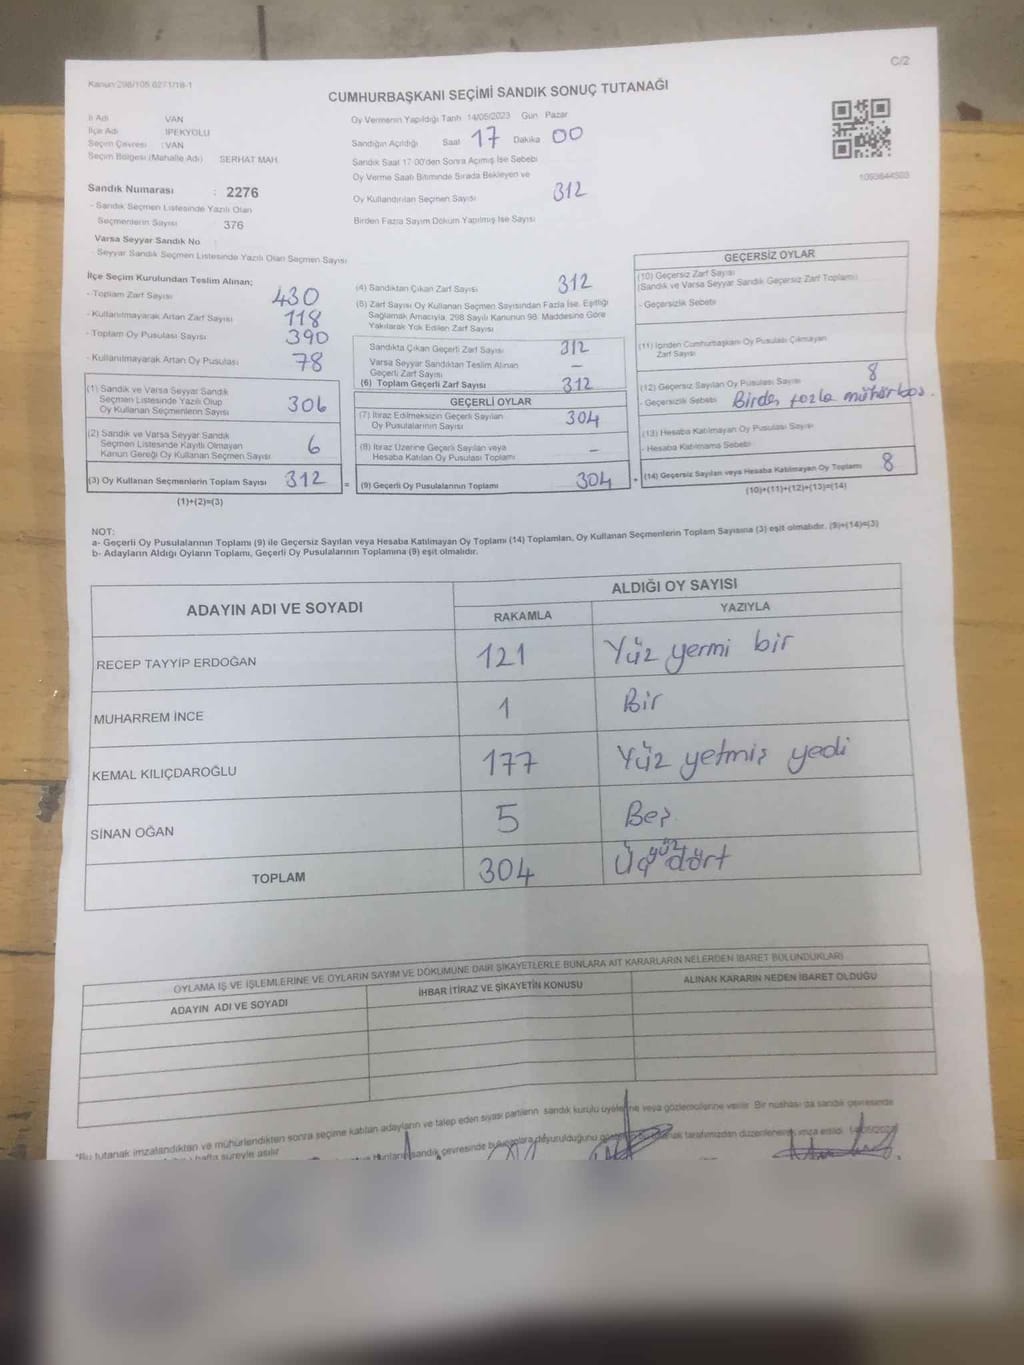 C/2
Kanun:298/105,6271/18-1
CUMHURBAŞKANI SEÇİMİ SANDIK SONUÇ TUTANAĞI
İl Adı VAN
İlçe Adı İPEKYOLU
Seçim Çevresi : VAN
Seçim Bölgesi (Mahalle Adı) SERHAT MAH.
Sandık Numarası : 2276
- Sandık Seçmen Listesinde Yazılı Olan
Seçmenlerin Sayısı 376
Varsa Seyyar Sandık No
- Seyyar Sandık Seçmen Listesinde Yazılı Olan Seçmen Sayısı
Oy Vermenin Yapıldığı Tarih 14/05/2023 Gün Pazar
Sandığın Açıldığı Saat 17 Dakika 00
Sandık Saat 17:00'den Sonra Açımış İse Sebebi
Oy Verme Saati Bitiminde Sırada Bekleyen ve
Oy Kullandırılan Seçmen Sayısı 312
Birden Fazla Sayım Döküm Yapılmış İse Sayısı
İlçe Seçim Kurulundan Teslim Alınan;
- Toplam Zarf Sayısı 430
- Kullanılmayarak Artan Zarf Sayısı 118
- Toplam Oy Pusulası Sayısı 390
- Kullanılmayarak Artan Oy Pusulası 78
(1) Sandık ve Varsa Seyyar Sandık
Seçmen Listesinde Yazılı Olup
Oy Kullanan Seçmenlerin Sayısı 306
(2) Sandık ve Varsa Seyyar Sandık
Seçmen Listesinde Kayıtlı Olmayan
Kanun Gereği Oy Kullanan Seçmen Sayısı 6
(3) Oy Kullanan Seçmenlerin Toplam Sayısı 312 =
(1)+(2)=(3)
(4) Sandıktan Çıkan Zarf Sayısı 312
(5) Zarf Sayısı Oy Kullanan Seçmen Sayısından Fazla İse, Eşitliği
Sağlamak Amacıyla, 298 Sayılı Kanunun 98. Maddesine Göre
Yakılarak Yok Edilen Zarf Sayısı
Sandıkta Çıkan Geçerli Zarf Sayısı 312
Varsa Seyyar Sandıktan Teslim Alınan
Geçerli Zarf Sayısı –
(6) Toplam Geçerli Zarf Sayısı 312
GEÇERLİ OYLAR
(7) İtiraz Edilmeksizin Geçerli Sayılan
Oy Pusulalarının Sayısı 304
(8) İtiraz Üzerine Geçerli Sayılan veya
Hesaba Katılan Oy Pusulası Toplamı –
(9) Geçerli Oy Pusulalarının Toplamı 304 +
GEÇERSİZ OYLAR
(10) Geçersiz Zarf Sayısı
(Sandık ve Varsa Seyyar Sandık Geçersiz Zarf Toplamı)
- Geçersizlik Sebebi
(11) İçinden Cumhurbaşkanı Oy Pusulası Çıkmayan
Zarf Sayısı
(12) Geçersiz Sayılan Oy Pusulası Sayısı 8
- Geçersizlik Sebebi Birden fazla mühür boş.
(13) Hesaba Katılmayan Oy Pusulası Sayısı
- Hesaba Katılmama Sebebi
(14) Geçersiz Sayılan veya Hesaba Katılmayan Oy Toplamı 8
(10)+(11)+(12)+(13)=(14)
NOT:
a- Geçerli Oy Pusulalarının Toplamı (9) ile Geçersiz Sayılan veya Hesaba Katılmayan Oy Toplamı (14) Toplamları, Oy Kullanan Seçmenlerin Toplam Sayısına (3) eşit olmalıdır. (9)+(14)=(3)
b- Adayların Aldığı Oyların Toplamı, Geçerli Oy Pusulalarının Toplamına (9) eşit olmalıdır.
ADAYIN ADI VE SOYADI
ALDIĞI OY SAYISI
RAKAMLA YAZIYLA
RECEP TAYYİP ERDOĞAN 121 Yüz yermi bir
MUHARREM İNCE 1 Bir
KEMAL KILIÇDAROĞLU 177 Yüz yetmiş yedi
SİNAN OĞAN 5 Beş
TOPLAM 304 Üçyüz dört
OYLAMA İŞ VE İŞLEMLERİNE VE OYLARIN SAYIM VE DÖKÜMÜNE DAİR ŞİKAYETLERLE BUNLARA AİT KARARLARIN NELERDEN İBARET BULUNDUKLARI
ADAYIN ADI VE SOYADI İHBAR İTİRAZ VE ŞİKAYETİN KONUSU ALINAN KARARIN NEDEN İBARET OLDUĞU
*Bu tutanak imzalandıktan ve mühürlendikten sonra seçime katılan adayların ve talep eden siyasi partilerin sandık kurulu üyelerine veya gözlemcilerine verilir. Bir nüshası da sandık çevresinde
hafta süreyle asılır
sandık çevresinde bulunanlara duyurulduğunu tarafımızdan düzenlenerek imza edildi. 14/05/2023